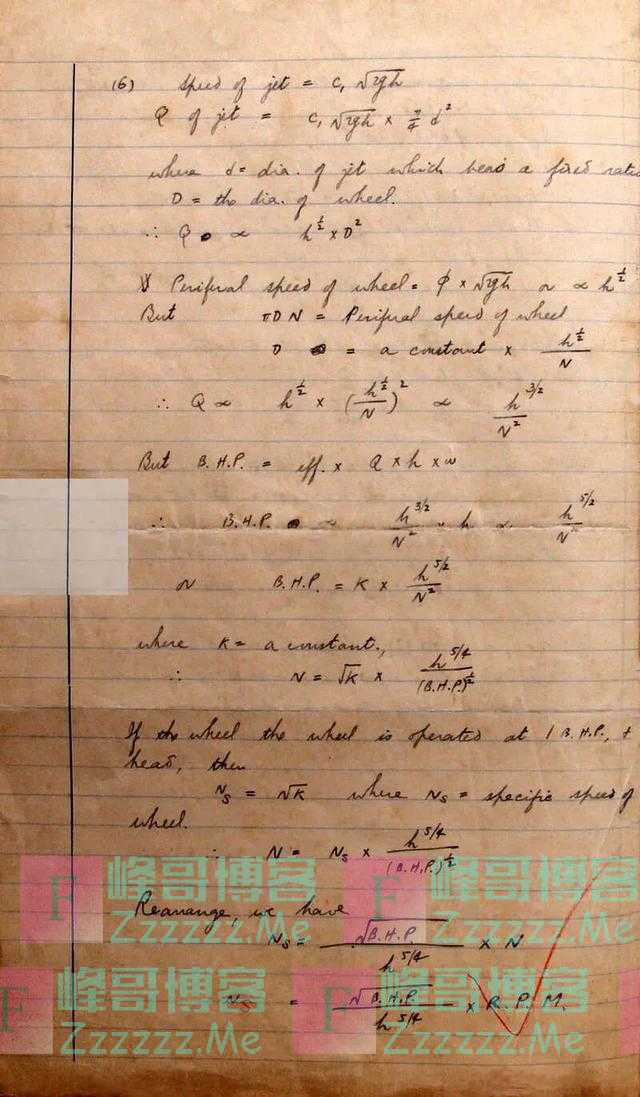 (6) Speed of jet = C₁ √2gh
Q of jet = C₁ √2gh × π/4 d²
where d = dia. of jet which bears a fixed ratio
D = the dia. of wheel.
∴ Q ∝ h^½ × D²
Periferal speed of wheel = φ × √2gh or ∝ h^½
But πDN = Periferal speed of wheel
D = a constant × h^½/N
∴ Q ∝ h^½ × (h^½/N)² ∝ h^3/2/N²
But B.H.P. = eff. × Q × h × w
∴ B.H.P. ∝ h^3/2/N² × h ∝ h^5/2/N²
or B.H.P. = K × h^5/2/N²
where K = a constant,
∴ N = √K × h^5/4/(B.H.P.)^½
If the wheel the wheel is operated at 1 B.H.P., +
head, then
N_S = √K where N_S = specific speed of
wheel.
∴ N = N_S × h^5/4/(B.H.P.)^½
Rearange, we have
N_S = √B.H.P./h^5/4 × N
N_S = √B.H.P/h^5/4 × R.P.M.
F 峰哥博客 F 峰哥博客
Zzzzzz.Me Zzzzzz.Me
F 峰哥博客 F 峰哥博客
Zzzzzz.Me Zzzzzz.Me